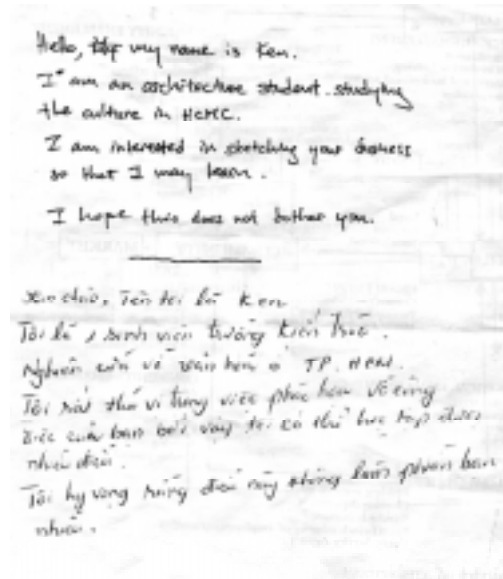 Hello, my name is Ken.
I am an architecture student studying
the culture in HCMC.
I am interested in sketching your business
so that I may learn.
I hope this does not bother you.
Xin chào, Tên tôi là Ken
Tôi là 1 sinh viên trường kiến trúc.
Nghiên cứu về văn hoá ở TP. HCM.
Tôi rất thú vị trong việc phác họa về công
việc của bạn bởi vậy tôi có thể học tập được
nhiều điều.
Tôi hy vọng rằng điều này không làm phiền bạn
nhiều.